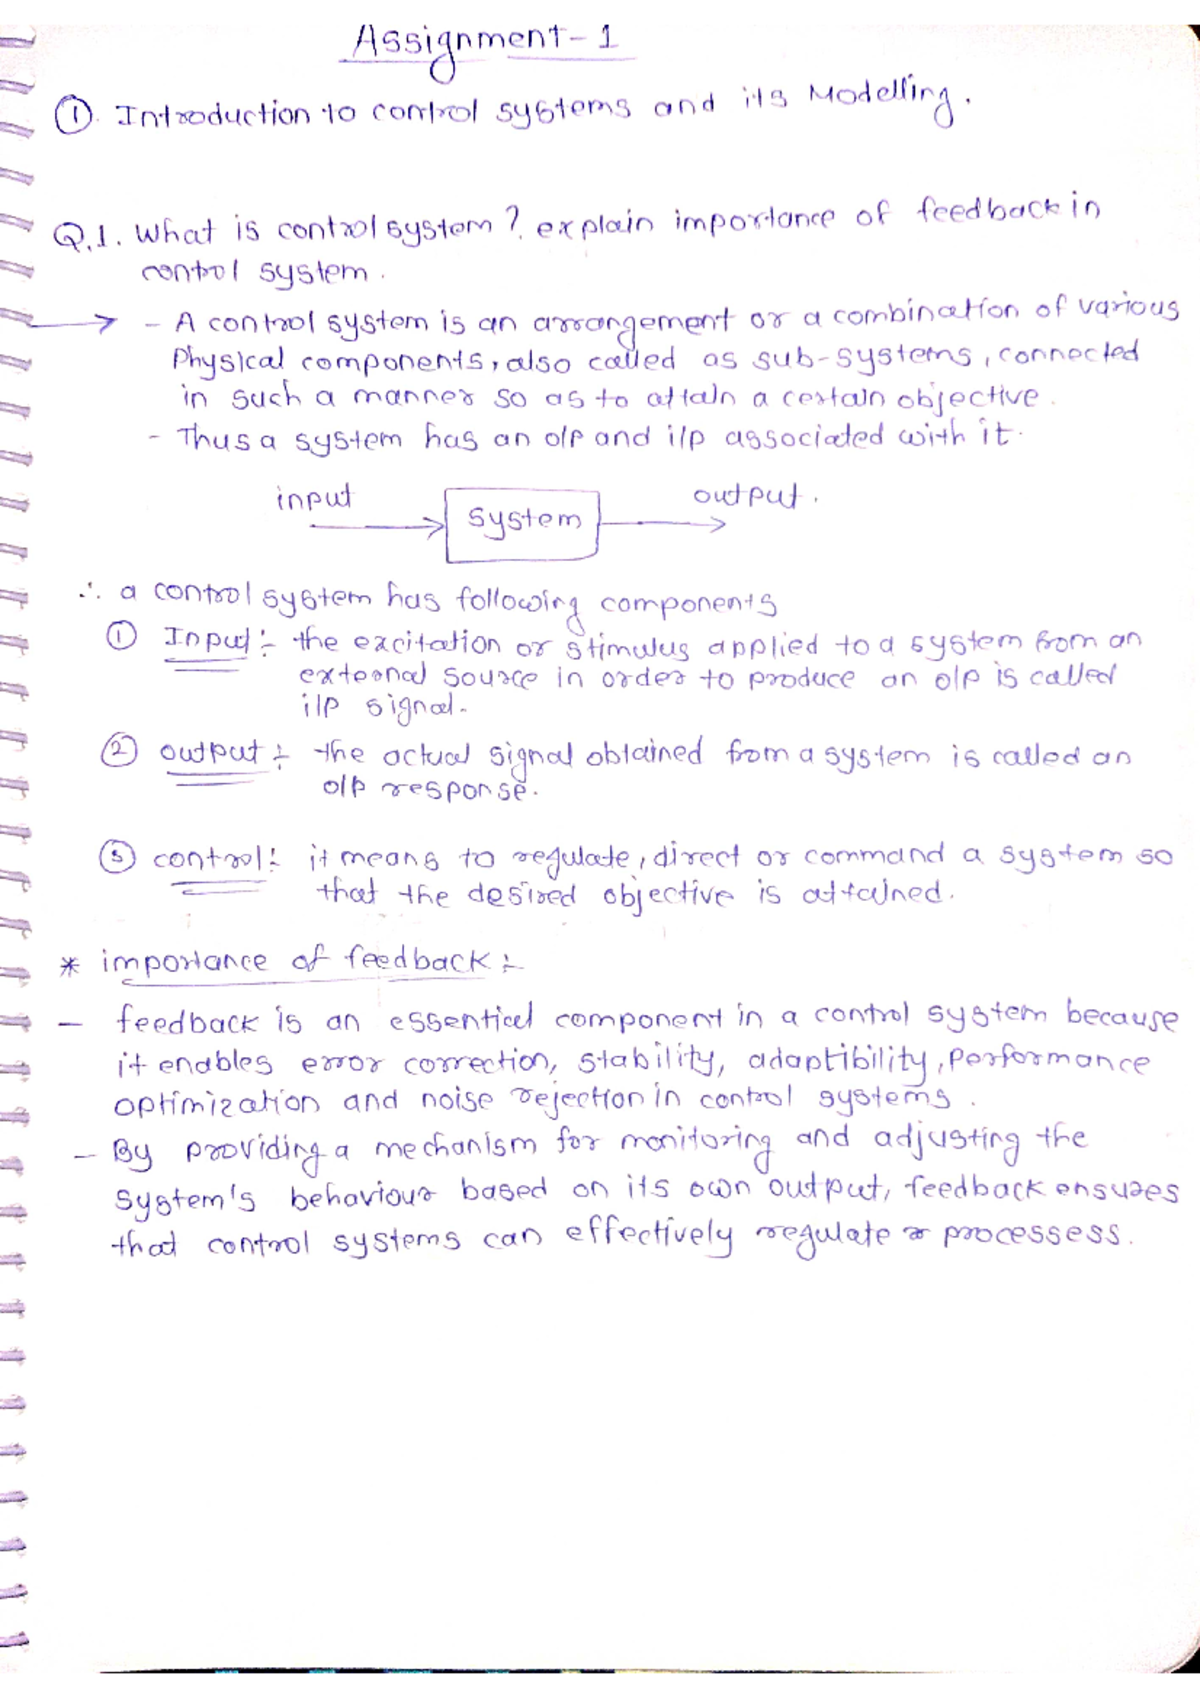 Assignment-1
① Introduction to control systems and its Modelling.
Q.1. What is control system? explain importance of feedback in
control system.
→ - A control system is an arrangement or a combination of various
Physical components, also called as sub-systems, connected
in such a manner so as to attain a certain objective.
- Thus a system has an o/p and i/p associated with it.
input output.
System
∴ a control system has following components
① Input :- the excitation or stimulus applied to a system from an
external source in order to produce an o/p is called
i/p signal.
② output :- the actual signal obtained from a system is called an
o/p response.
③ control: it means to regulate, direct or command a system so
that the desired objective is attained.
* importance of feedback :-
- feedback is an essential component in a control system because
it enables error correction, stability, adaptibility, performance
optimization and noise rejection in control systems.
- By providing a mechanism for monitoring and adjusting the
system's behaviour based on its own output, feedback ensures
that control systems can effectively regulate processess.